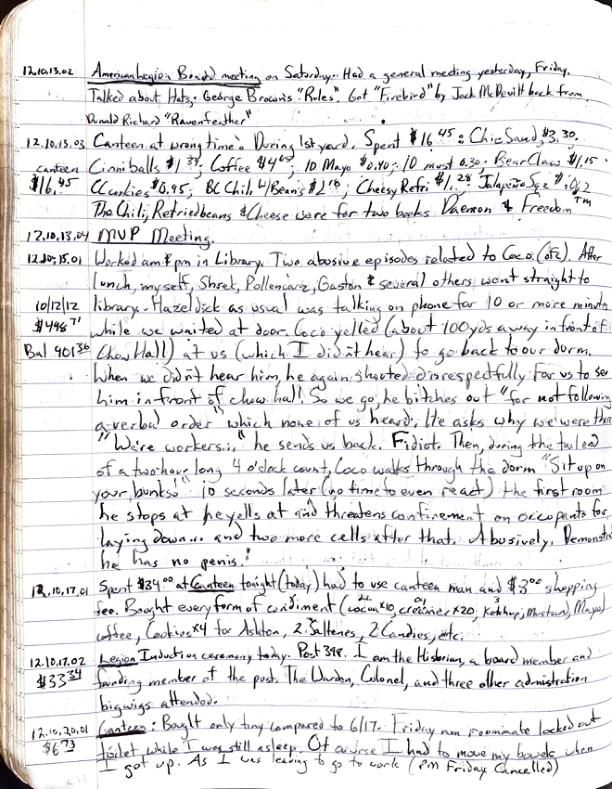 12.10.13.02 American Legion Board meeting on Saturday. Had a general meeting yesterday, Friday.
Talked about Hats, George Brown's "Rules". Got "Firebird" by Jack McDevitt back from
Donald Richard "Ravenfeather"
12.10.13.03 Canteen at wrong time. During 1st yard. Spent $16.45: Chic Sand, $3.30.
canteen Cinniballs $1 Coffee $4 10 Mayo $0.40, 10 must 0.30. Bear Claw $1.15
$16.45 CCookies $0.95, BC Chili w/Beans $2 Cheesy Refri $1.28 Jalapeño Sqz
The Chili, Refriedbeans & Cheese were for two books Daemon & Freedom™
12.10.13.04 MVP Meeting.
12.10.15.01 Worked am & pm in Library. Two abusive episodes related to Coco. (ofc). After
lunch, myself, Shrek, Pollencarz, Gaston & several others went straight to
10/12/12 library. Hazeldick as usual was talking on phone for 10 or more minutes
$498.71 while we waited at door. Coco yelled (about 100yds away in front of
Bal 901.36 Chow Hall) at us (which I didn't hear) to go back to our dorm.
When we didn't hear him, he again shouted disrespectfully for us to see
him in front of chow hall. So we go, he bitches out "for not following
a verbal order" which none of us heard. He asks why we were there
"We're workers..." he sends us back. Fidiot. Then, during the tail end
of a two hour long 4 o'clock count, Coco walks through the dorm "Sit up on
your bunks!" 10 seconds later (no time to even react) the first room
he stops at he yells at and threatens confinement on occupants for
laying down... and two more cells after that. Abusively. Demonstra
he has no penis!
12.10.17.01 Spent $34.00 at Canteen tonight (today) had to use canteen man and $3.00 shopping
fee. Bought every form of condiment (cocoa x10, creamer x20, Ketchup, Mustard, Mayo)
coffee, Cookies x4 for Ashton, 2 Saltenes, 2 Candies, etc.
12.10.17.02 Legion Induction ceremony today. Post 398. I am the Historian, a board member and
$33.34 founding member of the post. The Warden, Colonel, and three other admistration
bigwigs attended.
12.10.20.01 Canteen: Bought only tiny compared to 6/17. Friday roommate locked out
$6.73 toilet while I was still asleep. Of course I had to move my bowels when
I got up. As I was leaving to go to work (PM Friday Cancelled)